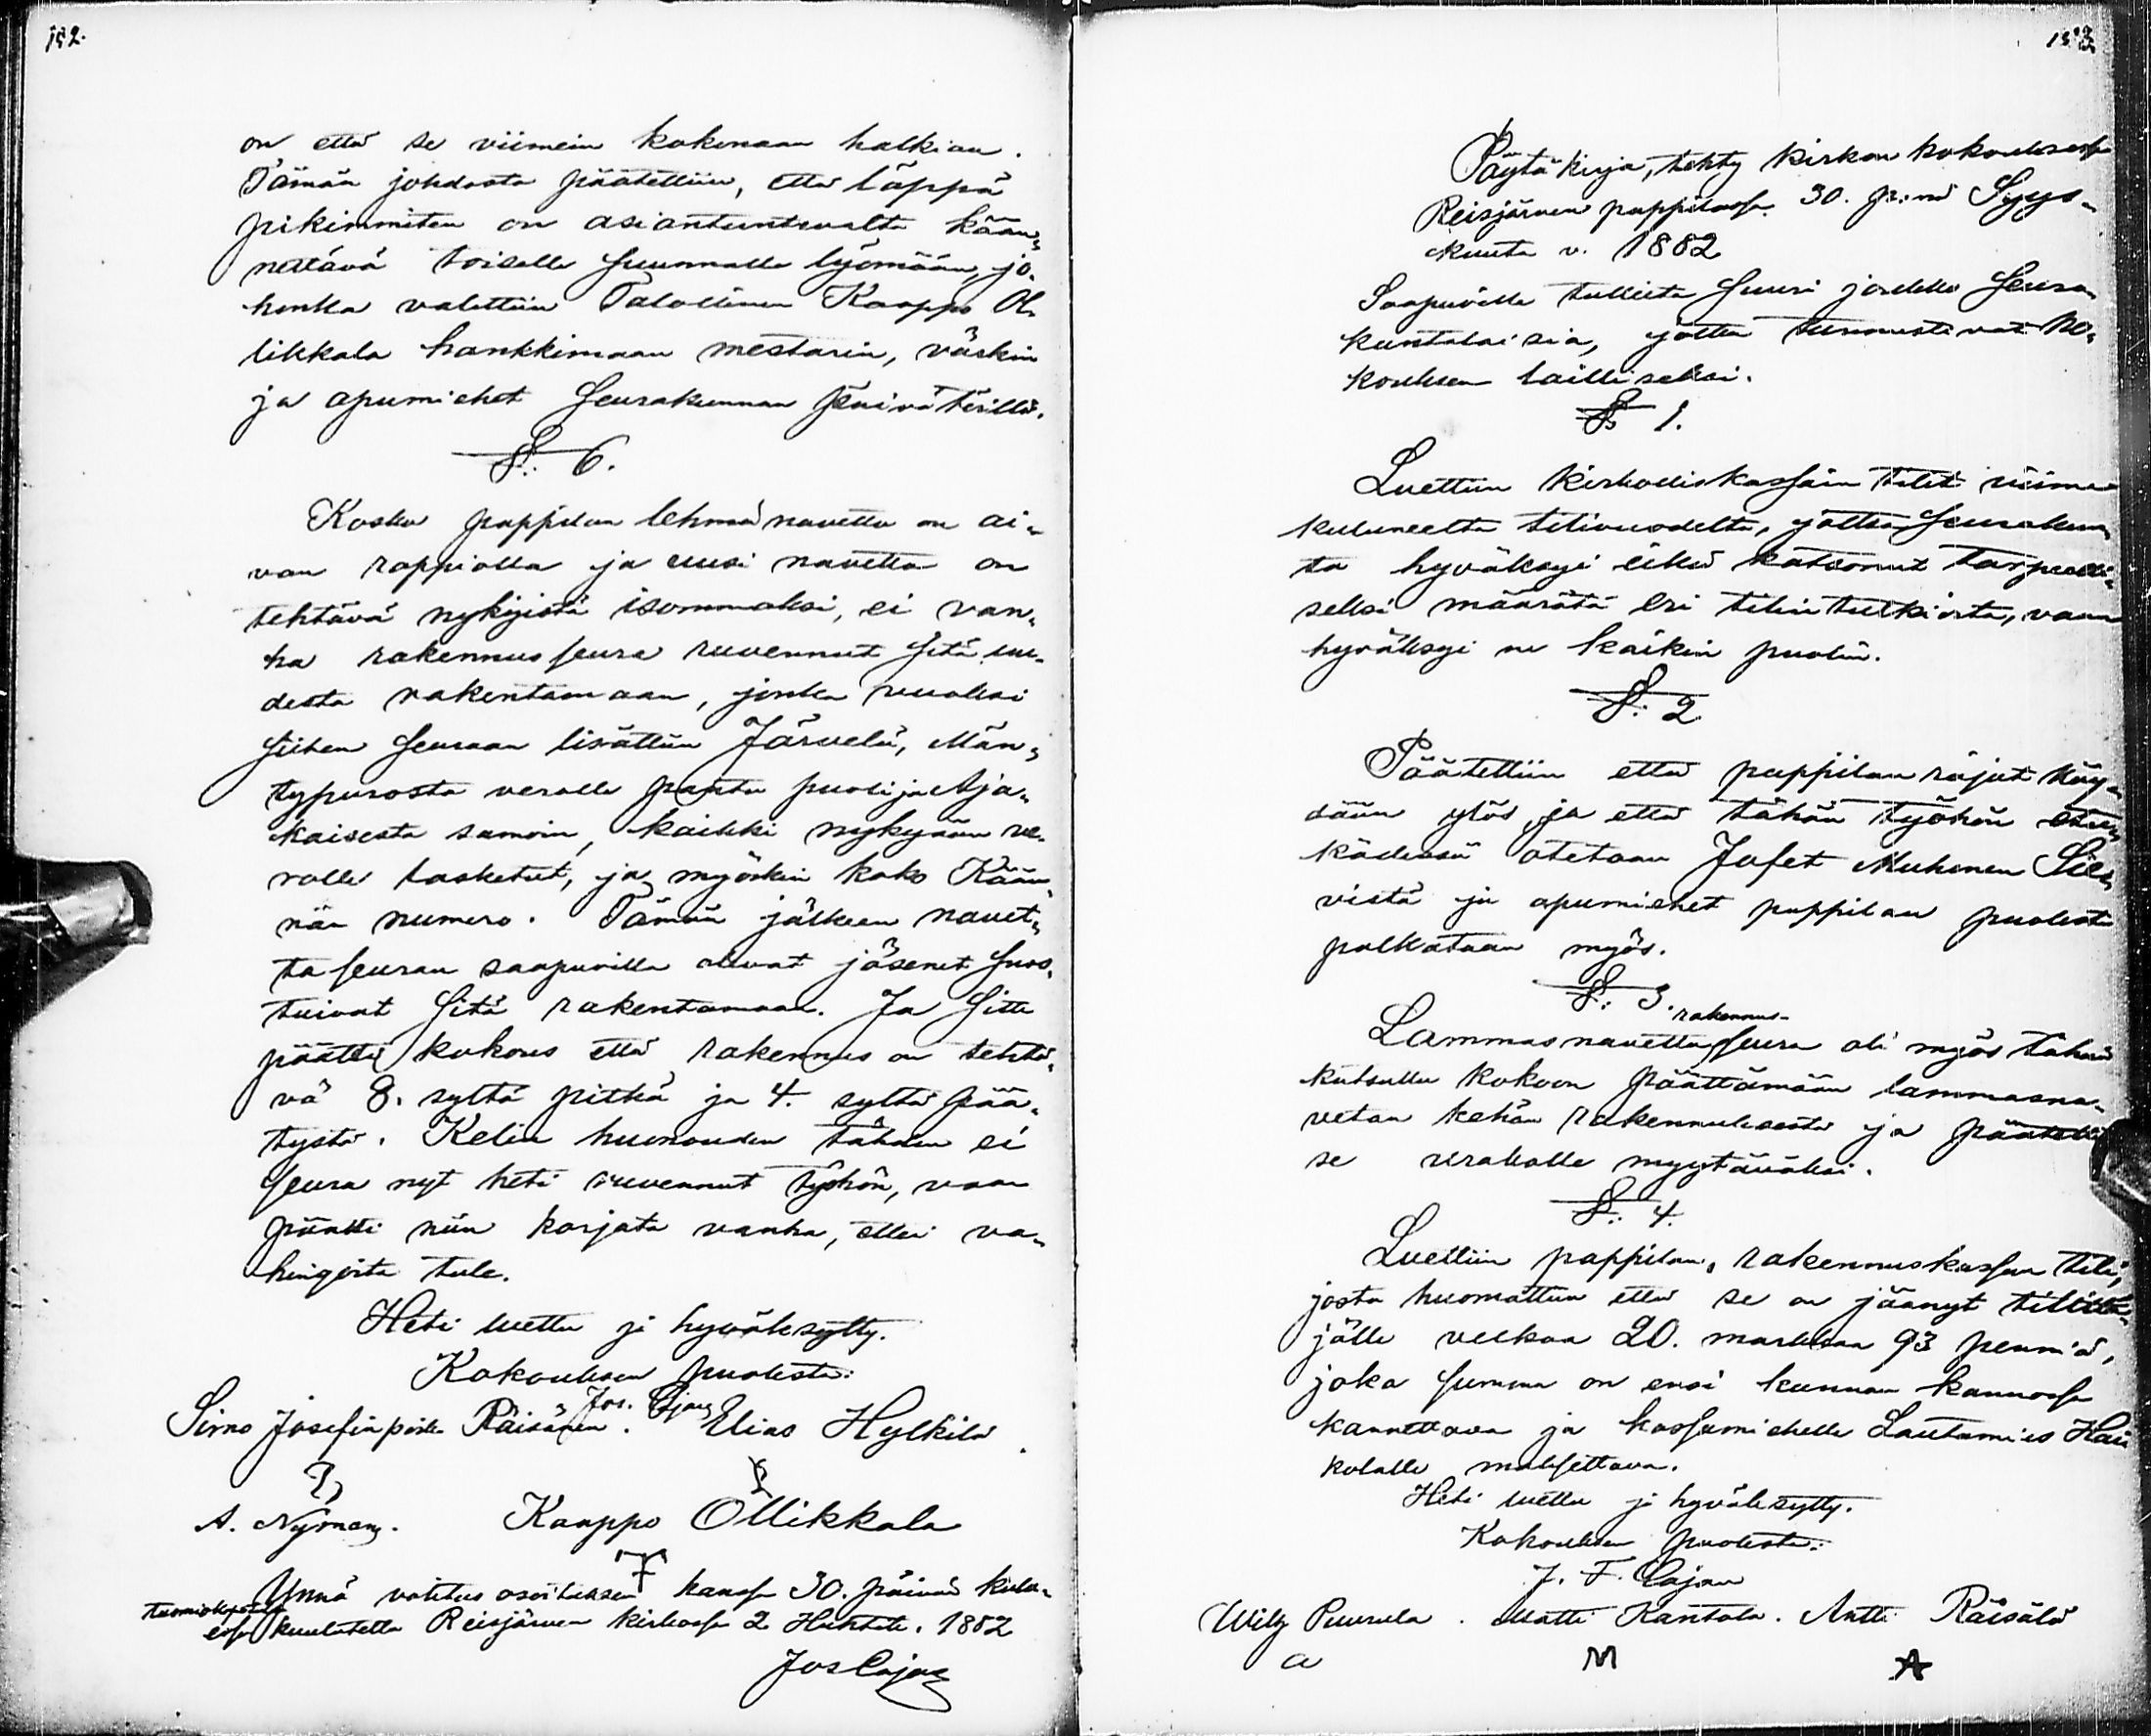 192.
on että se viimein kokonaan halkiaa.
Tämän johdosta päätettiin, että läppä
pikimmiten on asiantuntevalta kään-
nettävä toisella suunnalla lyömään, jo-
honka valittiin Talollinen Kaappo Ol-
likkala hankkimaan mestarin, väskin
ja apumiehet Seurakunnan
§: 6.
Koska pappilan lehmänavetta on ai-
van rappiolla ja uusi navetta on
tehtävä nykyistä isommaksi, ei van-
ha rakennusseura ruvennut sitä uu-
desta rakentamaan, jonka vuoksi
siihen seuraan lisättiin Järvelä, Män-
typurosta veralle pantu puoli ja Aja-
kaisesta samoin, kaikki nykyään ve-
rolle lasketut, ja myöskin koko Kään-
nän numero. Tämän jälkeen navet-
ta seuran saapuvilla olevat jäsenet suos-
tuivat sitä rakentamaan. Ja sitte
päätti kokous että rakennus on tehtä-
vä 8. syltä pitkä ja 4. syltä pää-
tystä. Kelin huonouden tähden ei
seura nyt heti ruvennut työhön, vaan
päätti niin korjata vanha, ettei va-
hingoita tule.
Heti luettu ja hyväksytty.
Kokouksen puolesta:
Jos. Cajan
Simo Josefinpoika Räisänen. Elias Hylkilä
A. Nyman. Kaappo Ollikkala
Ynnä valitus osoituksen kanssa 30. päivän kulu-
essa tuomiokapitulin kuulutettu Reisjärven kirkossa 2 Huhtik. 1882
Jos Cajan
193
Pöytäkirja, tehty kirkon kokouksessa
Reisjärven pappilassa 30. p:nä Syys-
kuuta v. 1882
Saapuville tulleita suuri joukko seura-
kuntalaisia, jotka tunnustivat ko-
kouksen lailliseksi.
§ 1.
Luettiin kirkolliskassain tilit viime
kuluneelta tilivuodelta, jotka seurakun-
ta hyväksyi eikä katsonut tarpeelli-
seksi määrätä eri tilintutkioita, vaan
hyväksyi ne kaikin puolin.
§: 2
Päätettiin että pappilan rajat käy-
dään ylös, ja että tähän työhön
otetaan Jafet Muhonen Sie-
vistä ja apumiehet pappilan puolesta
palkataan myös.
§: 3.
Lammasnavetta rakennus- seura oli myös tähän
kutsuttu kokoon päättämään lammasna-
vetan kehän rakennuksesta ja päätettiin
se urakalle myytäväksi.
§: 4.
Luettiin pappilan, rakennuskassan tili,
josta huomattiin että se on jäänyt tilittä-
jälle velkaa 20. markkaa 93 penniä,
joka summa on ensi kunnan kannossa
kannettava ja kassamiehelle Lautamies Hau
kolalle maksettava.
Heti luettu ja hyväksytty.
Kokouksen puolesta:
J. F. Cajan
Wilh Puurula. Matti Kantola. Antti Räisälä
a M A